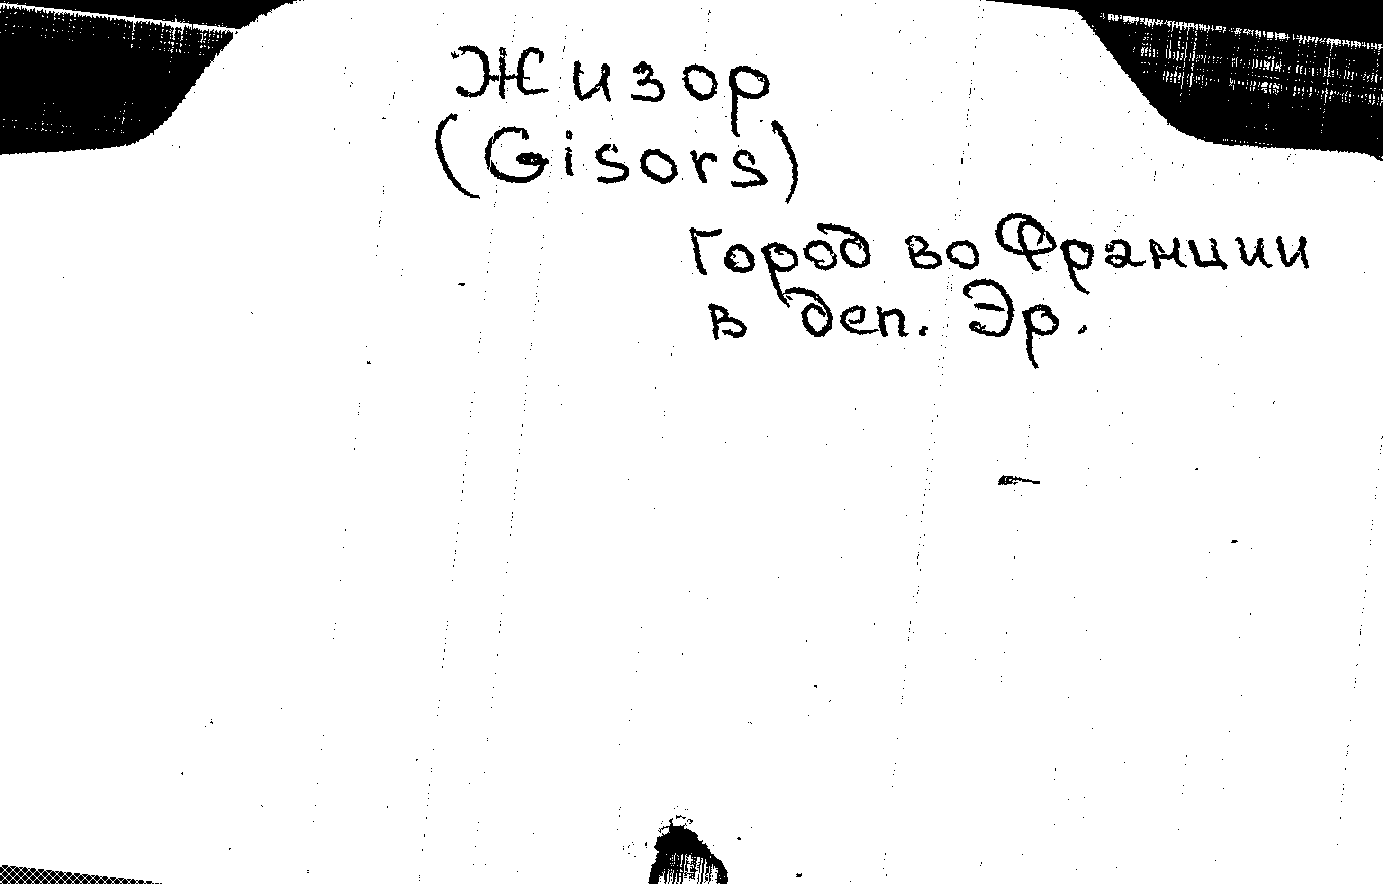 Жизор
(Gisors)
Город во Франции
в деп. Эр.